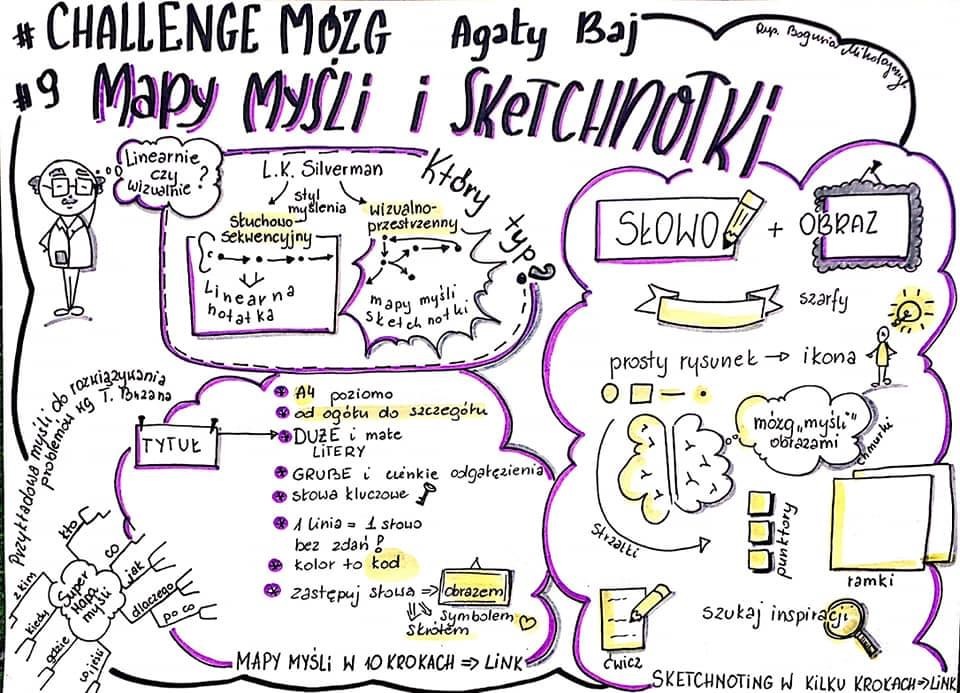 # CHALLENGE MÓZG Agaty Baj
Rys. Bogusia Mikołajczyk
#9 Mapy MYŚLi i SKETCHNOTKi
Linearnie
czy
wizualnie?
L.K. Silverman
styl
myślenia
Słuchowo-
sekwencyjny
wizualno-
przestrzenny
Linearna
notatka
mapy myśli
sketchnotki
Który typ?
SŁOWO + OBRAZ
szarfy
prosty rysunek → ikona
mózg „myśli”
obrazami
chmurki
Strzałki
punktory
ramki
szukaj inspiracji
ćwicz
SKETCHNOTING W KILKU KROKACH => LiNK
Przykładowa myśli do rozwiązywania
problemów wg T. Buzana
TYTUŁ
A4 poziomo
od ogółu do szczegółu
DUŻE i małe
LITERY
GRUBE i cienkie odgałęzienia
słowa kluczowe
1 linia = 1 słowo
bez zdań!
kolor to kod
zastępuj słowa => obrazem
symbolem
skrótem
Super
Mapa
myśli
kto
co
jak
dlaczego
po co
z kim
kiedy
gdzie
MAPY MYŚLi W 10 KROKACH => LiNK